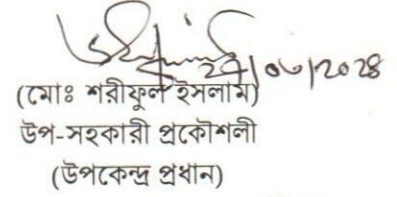 ২৭/০৬/২০২৪
(মোঃ শরীফুল ইসলাম)
উপ-সহকারী প্রকৌশলী
(উপকেন্দ্র প্রধান)